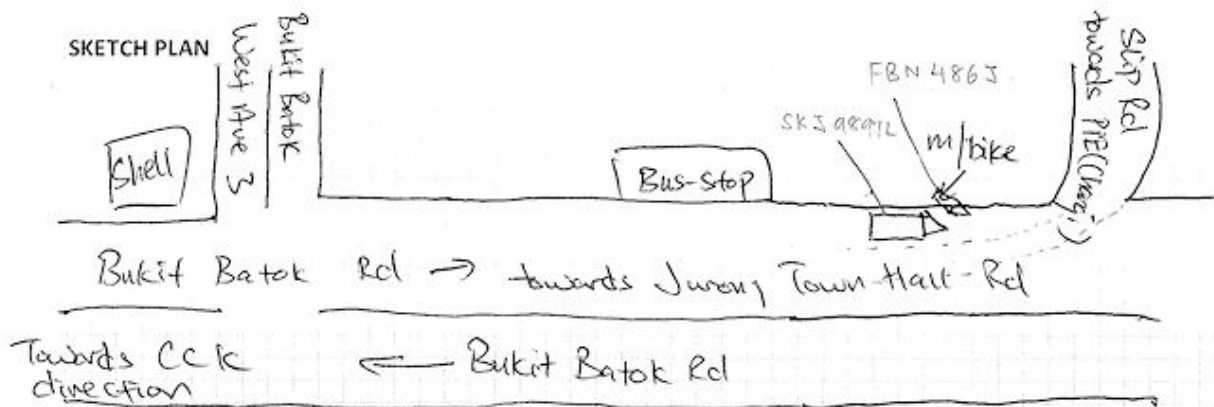 SKETCH PLAN
Bukit Batok
West Ave 3
Shell
Bus-Stop
SKJ9899L
FBN 486J
m/bike
Slip Rd
towards PIE(Changi)
Bukit Batok Rd → towards Jurong Town-Hall-Rd
Towards CCK
direction
← Bukit Batok Rd